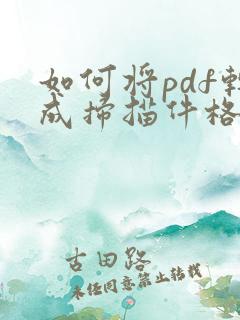 如何将pdf转
成扫描件格
古田路
未经同意禁止转载